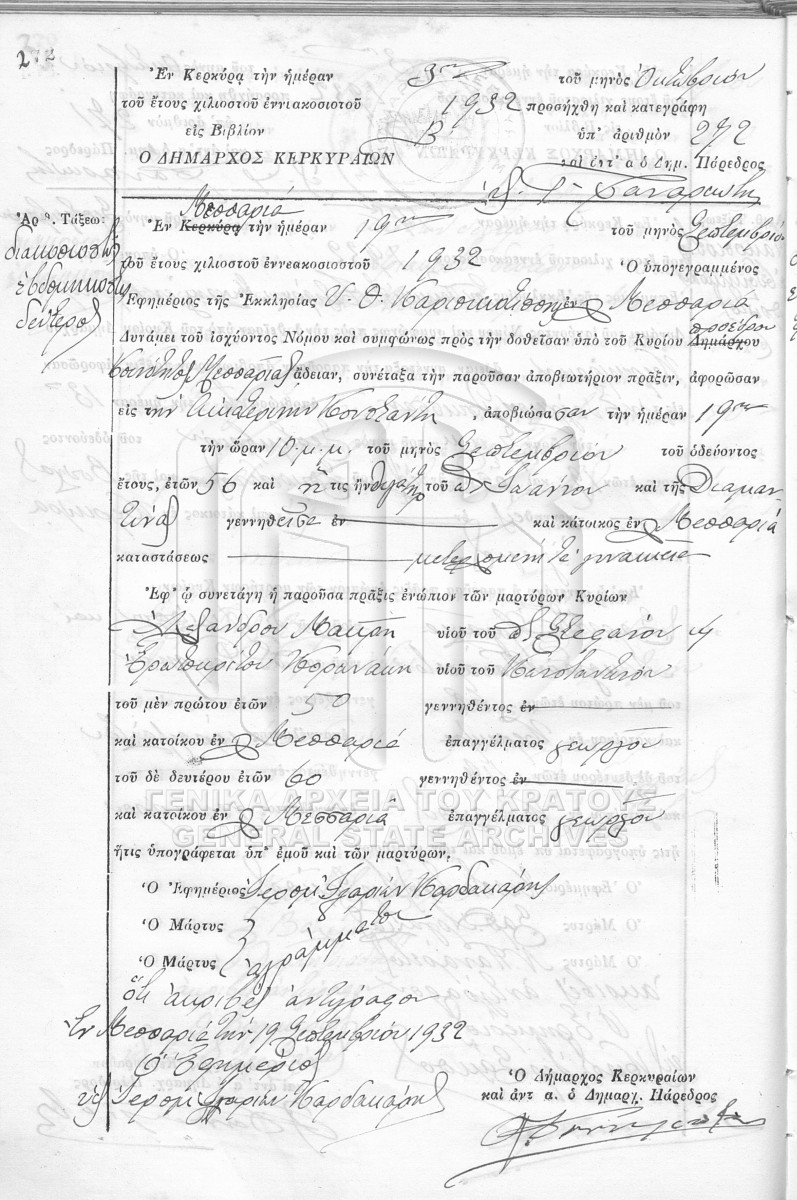 272
Ἐν Κερκύρᾳ τὴν ἡμέραν 3ην τοῦ μηνὸς Ὀκτωβρίου
τοῦ ἔτους χιλιοστοῦ ἐννιακοσιοτοῦ 1932 προσήχθη καὶ κατεγράφη
εἰς Βιβλίον Β ὑπ' ἀριθμὸν 272
Ο ΔΗΜΑΡΧΟΣ ΚΕΡΚΥΡΑΙΩΝ καὶ ἀντ' α ὁ Δημ. Πάρεδρος
Μεσσαριᾷ
Ἐν Κερκύρᾳ τὴν ἡμέραν 19ην τοῦ μηνὸς Σεπτεμβρίου
Ἀρ θ. Τάξεω:
διακοσιοστὸς
ἑβδομηκοστὸς
δεύτερος
τοῦ ἔτους χιλιοστοῦ ἐννεακοσιοστοῦ 1932 Ὁ ὑπογεγραμμένος
Ἐφημέριος τῆς Ἐκκλησίας Υ. Θ. ἐν Μεσσαριᾷ
Δυνάμει τοῦ ἰσχύοντος Νόμου καὶ συμφώνως πρὸς τὴν δοθεῖσαν ὑπὸ τοῦ Κυρίου Δημάρχου προέδρου
Κοινότητος Μεσσαριᾶς ἄδειαν, συνέταξα τὴν παροῦσαν ἀποβιωτήριον πρᾶξιν, ἀφορῶσαν
εἰς τὴν Αἰκατερίνην Κουστάντη, ἀποβιώσασαν τὴν ἡμέραν 19ην
τὴν ὥραν 10 μ.μ. τοῦ μηνὸς Σεπτεμβρίου τοῦ ὁδεύοντος
ἔτους, ἐτῶν 56 καὶ ἥ τις ἦν θυγάτηρ τοῦ Ἰωάννου καὶ τῆς Διαμαν
τίνας γεννηθεῖσα ἐν καὶ κάτοικος ἐν Μεσσαριᾷ
καταστάσεως μετερχομένη τὰ γυναικεῖα
Ἐφ' ᾧ συνετάγη ἡ παροῦσα πρᾶξις ἐνώπιον τῶν μαρτύρων Κυρίων
Ἀλεξάνδρου Μακρῆ υἱοῦ τοῦ Στεφάνου
Ἐρωτοκρίτου Κορωνάκη υἱοῦ τοῦ Κωνσταντίνου
τοῦ μὲν πρώτου ἐτῶν 50 γεννηθέντος ἐν
καὶ κατοίκου ἐν Μεσσαριᾷ ἐπαγγέλματος γεωργοῦ
τοῦ δὲ δευτέρου ἐτῶν 60 γεννηθέντος ἐν
ΓΕΝΙΚΑ ΑΡΧΕΙΑ ΤΟΥ ΚΡΑΤΟΥΣ
καὶ κατοίκου ἐν Μεσσαριᾷ ἐπαγγέλματος γεωργοῦ
GENERAL STATE ARCHIVES
ἥτις ὑπογράφεται ὑπ' ἐμοῦ καὶ τῶν μαρτύρων.
Ὁ Ἐφημέριος Ἱερομ. Ἱλαρίων Καρδακάρης
Ὁ Μάρτυς
ἀγράμματοι
Ὁ Μάρτυς
ὅτι ἀκριβὲς ἀντίγραφον
Ἐν Μεσσαριᾷ τὴν 19 Σεπτεμβρίου 1932
Ὁ Ἐφημέριος
Ἱερομ. Ἱλαρίων Καρδακάρης
Ὁ Δήμαρχος Κερκυραίων
καὶ ἀντ α. ὁ Δημαρχ. Πάρεδρος